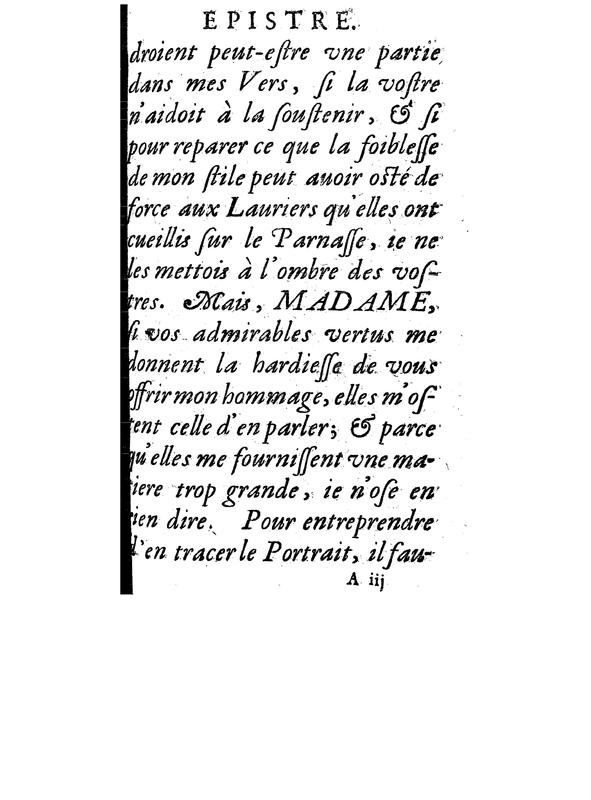 EPISTRE.
droient peut-eſtre vne partie
dans mes Vers, ſi la voſtre
n'aidoit à la ſouſtenir, & ſi
pour reparer ce que la foibleſſe
de mon ſtile peut auoir oſté de
force aux Lauriers qu'elles ont
cueillis ſur le Parnaſſe, ie ne
les mettois à l'ombre des voſ-
tres. Mais, MADAME,
ſi vos admirables vertus me
donnent la hardieſſe de vous
offrir mon hommage, elles m'oſ-
tent celle d'en parler; & parce
qu'elles me fourniſſent vne ma-
tiere trop grande, ie n'oſe en
rien dire. Pour entreprendre
d'en tracer le Portrait, il fau-
A iij